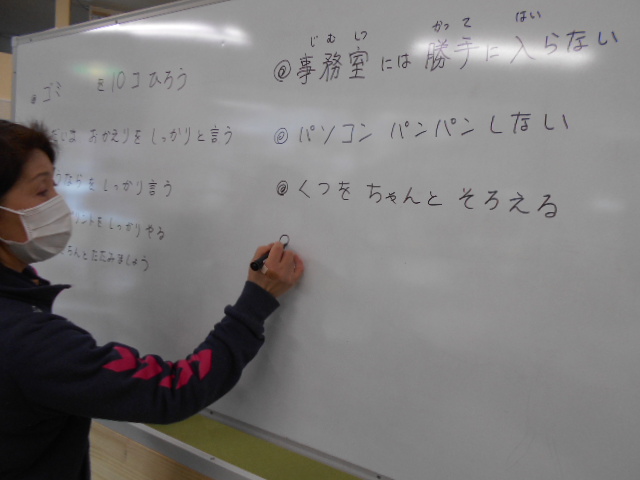 ゴミ を10コひろう
は おかえりをしっかりと言う
ならをしっかり言う
ントをしっかりやる
ちんとたたみましょう
じむしつ かって はい
@事務室には勝手に入らない
@パソコン パンパンしない
@くつをちゃんとそろえる